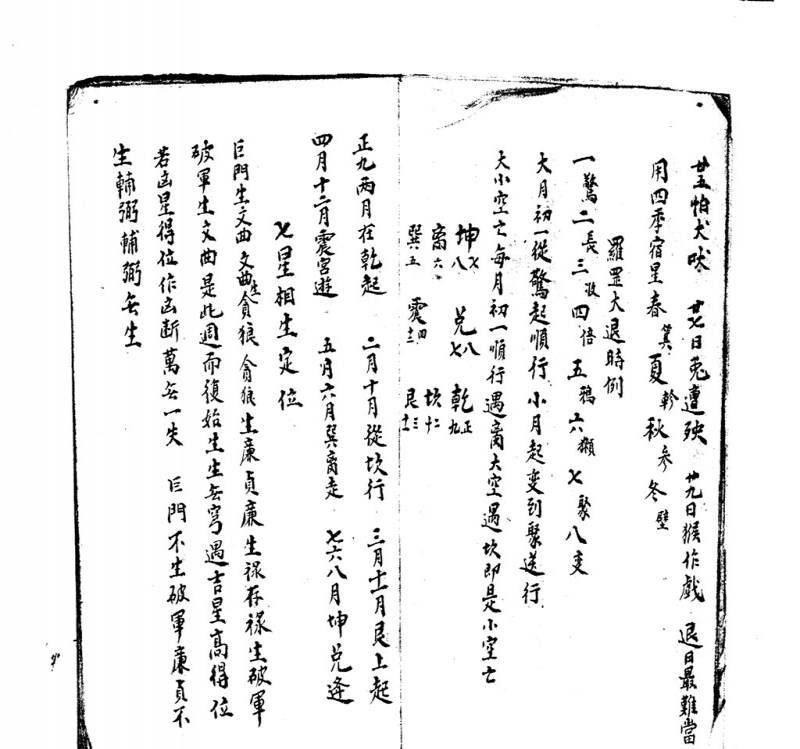 廿五怕犬吠 廿七日兎遭殃 廿九日猴作戲 退日最難當
用四季宿星春箕夏軫秋參冬壁
羅罡大退時例
一驚二長三收四倍五鴉六獺七聚八变
大月初一從驚起順行小月起变到聚送行
大小空亡每月初一順行遇离大空遇坎即是小空亡
坤七八 兌八七 乾正九
离六六 坎十二
巽五 震四十二 艮三十一
正九兩月在乾起 二月十月從坎行 三月十一月艮上起
四月十二月震宮遊 五月六月巽离走 七六八月坤兌逢
七星相生定位
巨門生文曲文曲生貪狼貪狼生廉貞廉生禄存祿生破軍
破軍生文曲是此週而復始生生無窮遇吉星高得位
若凶星得位作凶断萬無一失 巨門不生破軍廉貞不
生輔弼輔弼無生